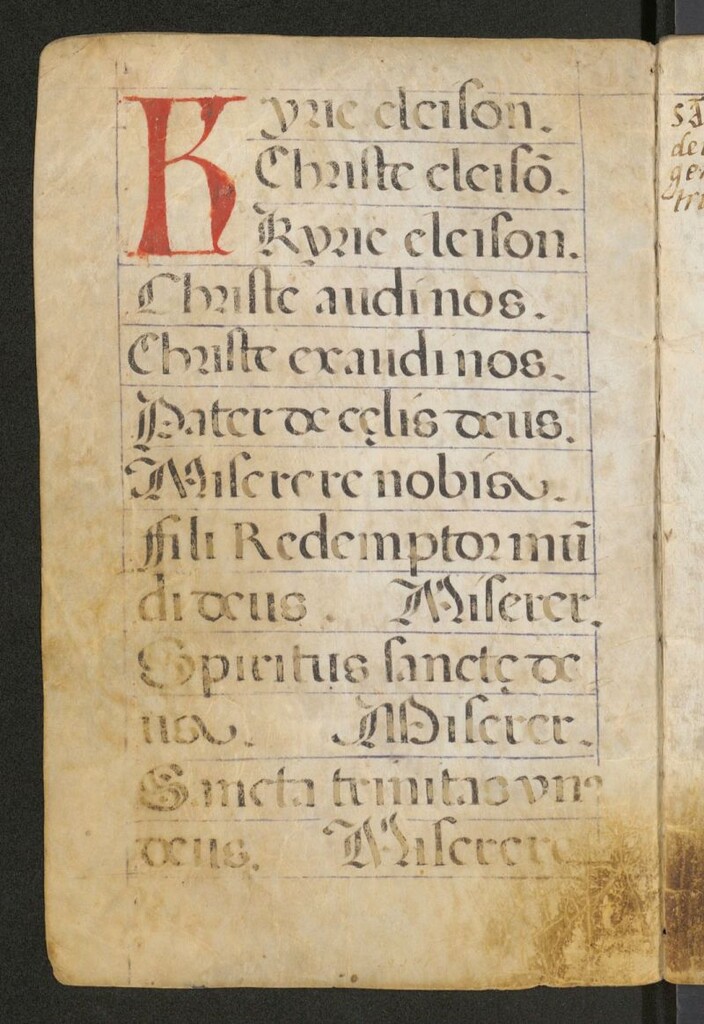 Kyrie eleison.
Christe eleisõ.
Kyrie eleison.
Christe audi nos.
Christe exaudi nos.
Pater de cęlis deus.
Miserere nobis.
Fili Redemptor mũ
di deus. Miserer.
Spiritus sanctę de
us. Miserer.
Sancta trinitas vnꝰ
deus. Miserere